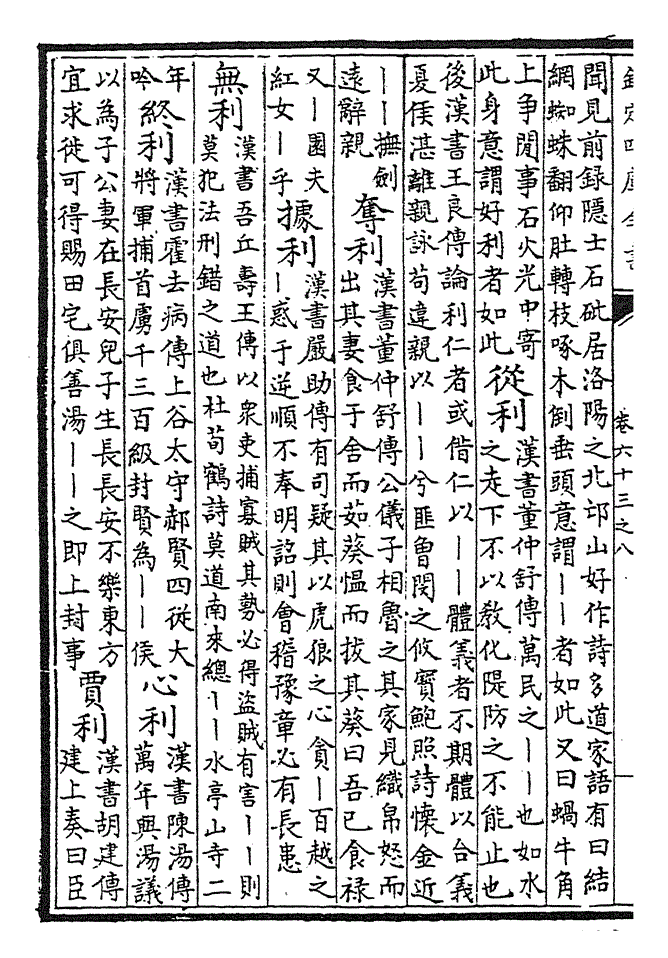 欽定四庫全書
卷六十三之八
聞見前錄隱士石砒居洛陽之北邙山好作詩多道家語有曰結
網蜘蛛翻仰肚轉枝啄木倒垂頭意謂丨丨者如此又曰蝸牛角
上争閒事石火光中寄
此身意謂好利者如此
從利
漢書董仲舒傳萬民之丨丨也如水
之走下不以教化隄防之不能止也
後漢書王良傳論利仁者或借仁以丨丨體義者不期體以合義
夏侯湛離親詠苟違親以丨丨兮匪曾閔之攸寶鮑照詩懷金近
丨丨撫劍
遠辭親
奪利
漢書董仲舒傳公儀子相魯之其家見織帛怒而
出其妻食于舍而茹葵愠而拔其葵曰吾已食禄
又丨園夫
紅女丨乎
據利
漢書嚴助傳有司疑其以虎狼之心貪丨百越之
丨惑于逆順不奉明詔則會稽豫章必有長患
無利
漢書吾丘壽王傳以衆吏捕寡賊其勢必得盜賊有害丨丨則
莫犯法刑錯之道也杜荀鶴詩莫道南來總丨丨水亭山寺二
年
吟
終利
漢書霍去病傳上谷太守郝賢四從大
將軍捕首虜千三百級封賢為丨丨侯
心利
漢書陳湯傳
萬年與湯議
以為子公妻在長安兒子生長長安不樂東方
宜求徙可得賜田宅俱善湯丨丨之即上封事
賈利
漢書胡建傳
建上奏曰臣